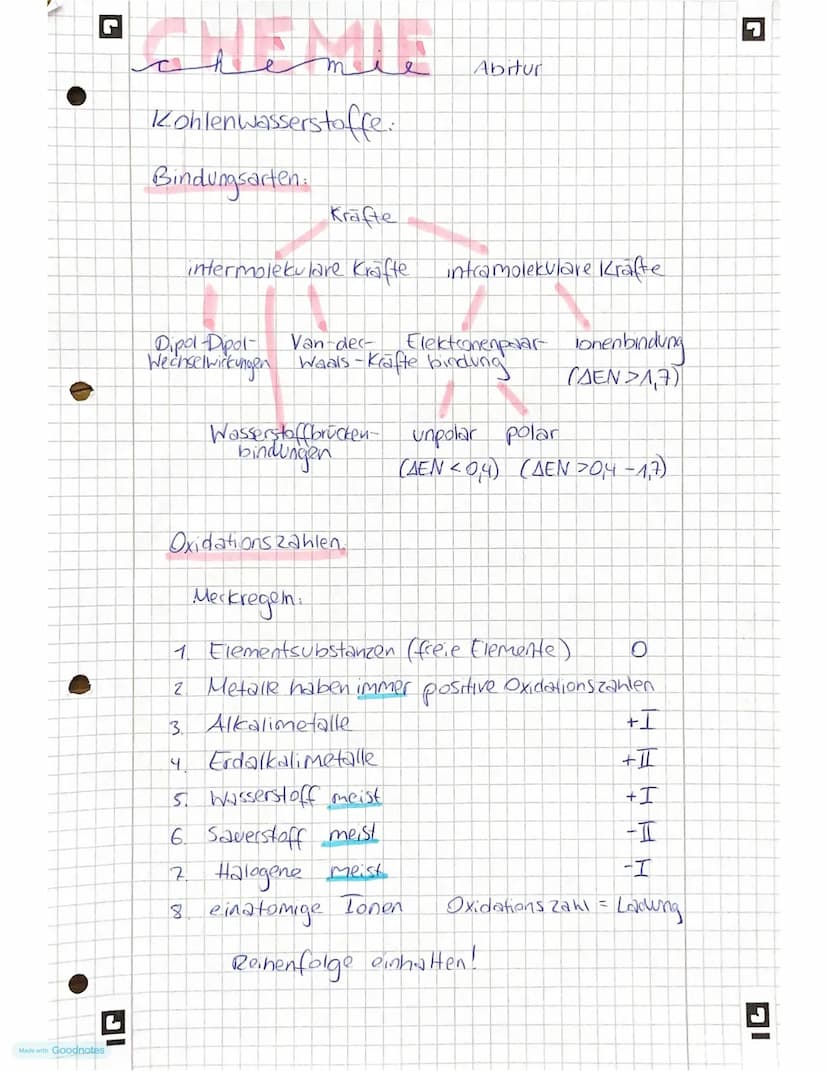 CHEMIE
chemie Abitur
Kohlenwasserstoffe:
Bindungsarten:
Kräfte
intermolekulare Kräfte intramolekulare Kräfte
Dipol-Dipol- Van-der- Elektronenpaar- Ionenbindung
Wechselwirkungen Waals-Kräfte bindung (ΔEN>1,7)
Wasserstoffbrücken- unpolar polar
bindungen (ΔEN<0,4) (ΔEN>0,4-1,7)
Oxidationszahlen:
Merkregeln:
1. Elementsubstanzen (freie Elemente) 0
2. Metalle haben immer positive Oxidationszahlen
3. Alkalimetalle +I
4. Erdalkalimetalle +II
5. Wasserstoff meist +I
6. Sauerstoff meist -II
7. Halogene meist -I
8. einatomige Ionen Oxidationszahl = Ladung
Reihenfolge einhalten!
Made with Goodnotes